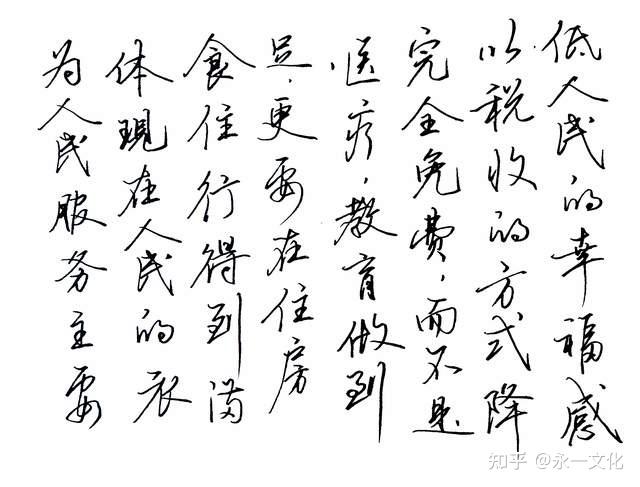 为人民服务主要
体現在人民的衣
食住行得到满
足，更要在住房
、医疗，教育做到
完全免费，而不是
以税收的方式降
低人民的幸福感
知乎 @永一文化